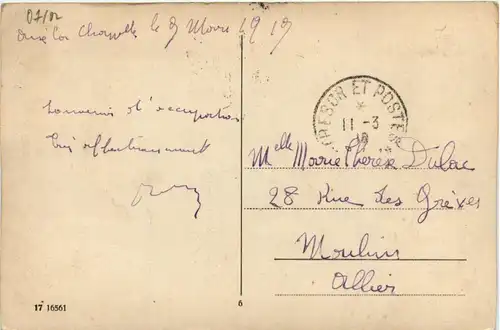 07/02
Aix la Chapelle le 9 Mars 1919
Souvenir d'occupation
Bien affectueusement
TRESOR ET POSTES
*
11-3
19
Melle Marie Therese Dulac
28 Rue des Grèves
Moulins
Allier
17 16561
6